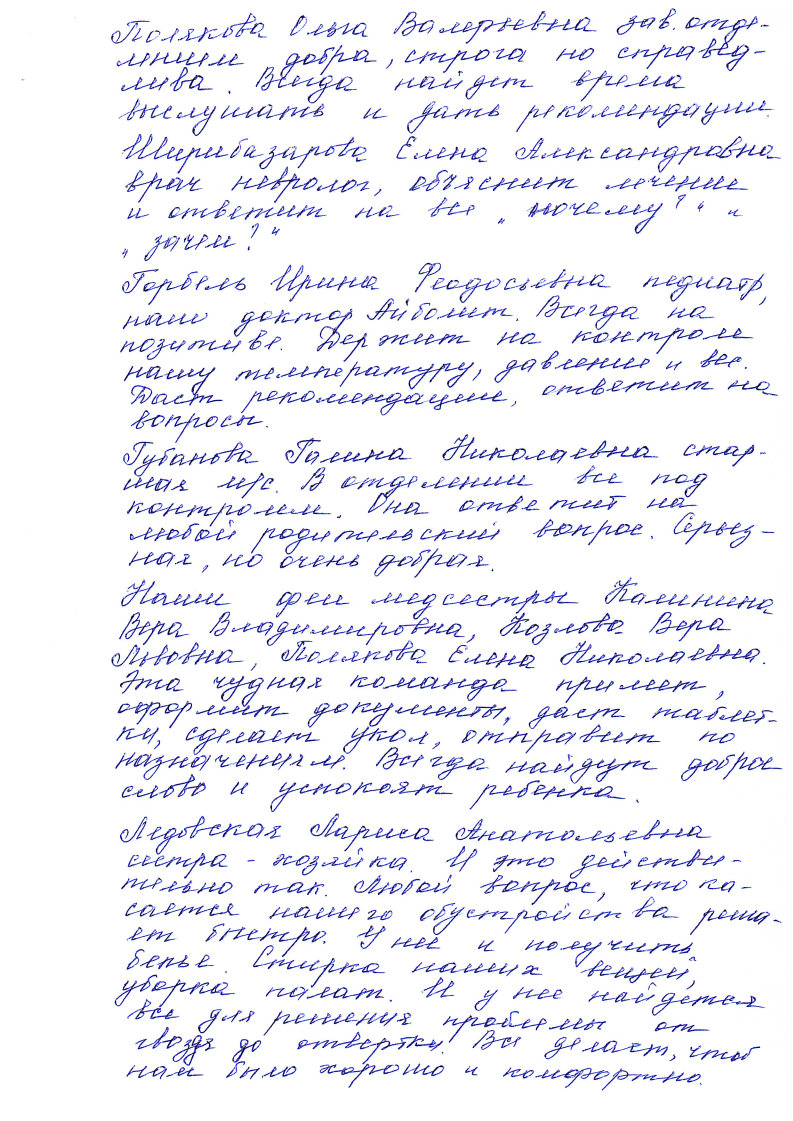 Полякова Ольга Валерьевна зав. отде-
лением добра, строга но справед-
лива. Всегда найдет время
выслушать и дать рекомендации.
Ширибазарова Елена Александровна
врач невролог, объяснит лечение
и ответит на все „почему?“ и
„зачем?“
Горбель Ирина Феодосьевна педиатр,
наш доктор Айболит. Всегда на
позитиве. Держит на контроле
нашу температуру, давление и вес.
Даст рекомендации, ответит на
вопросы.
Губанова Галина Николаевна стар-
шая м/с. В отделении все под
контролем. Она ответит на
любой родительский вопрос. Серьез-
ная, но очень добрая.
Наши феи медсестры Калинина
Вера Владимировна, Козлова Вера
Львовна, Полякова Елена Николаевна.
Эта чудная команда примет,
оформит документы, даст таблет-
ки, сделает укол, отправит по
назначениям. Всегда найдут доброе
слово и успокоят ребенка.
Ледовская Лариса Анатольевна
сестра - хозяйка. И это действи-
тельно так. Любой вопрос, что ка-
сается нашего обустройства реша-
ет быстро. У нее и получить
белье. Стирка наших вещей,
уборка палат. И у нее найдется
все для решения проблемы от
гвоздя до отвертки. Все делает, чтоб
нам было хорошо и комфортно.